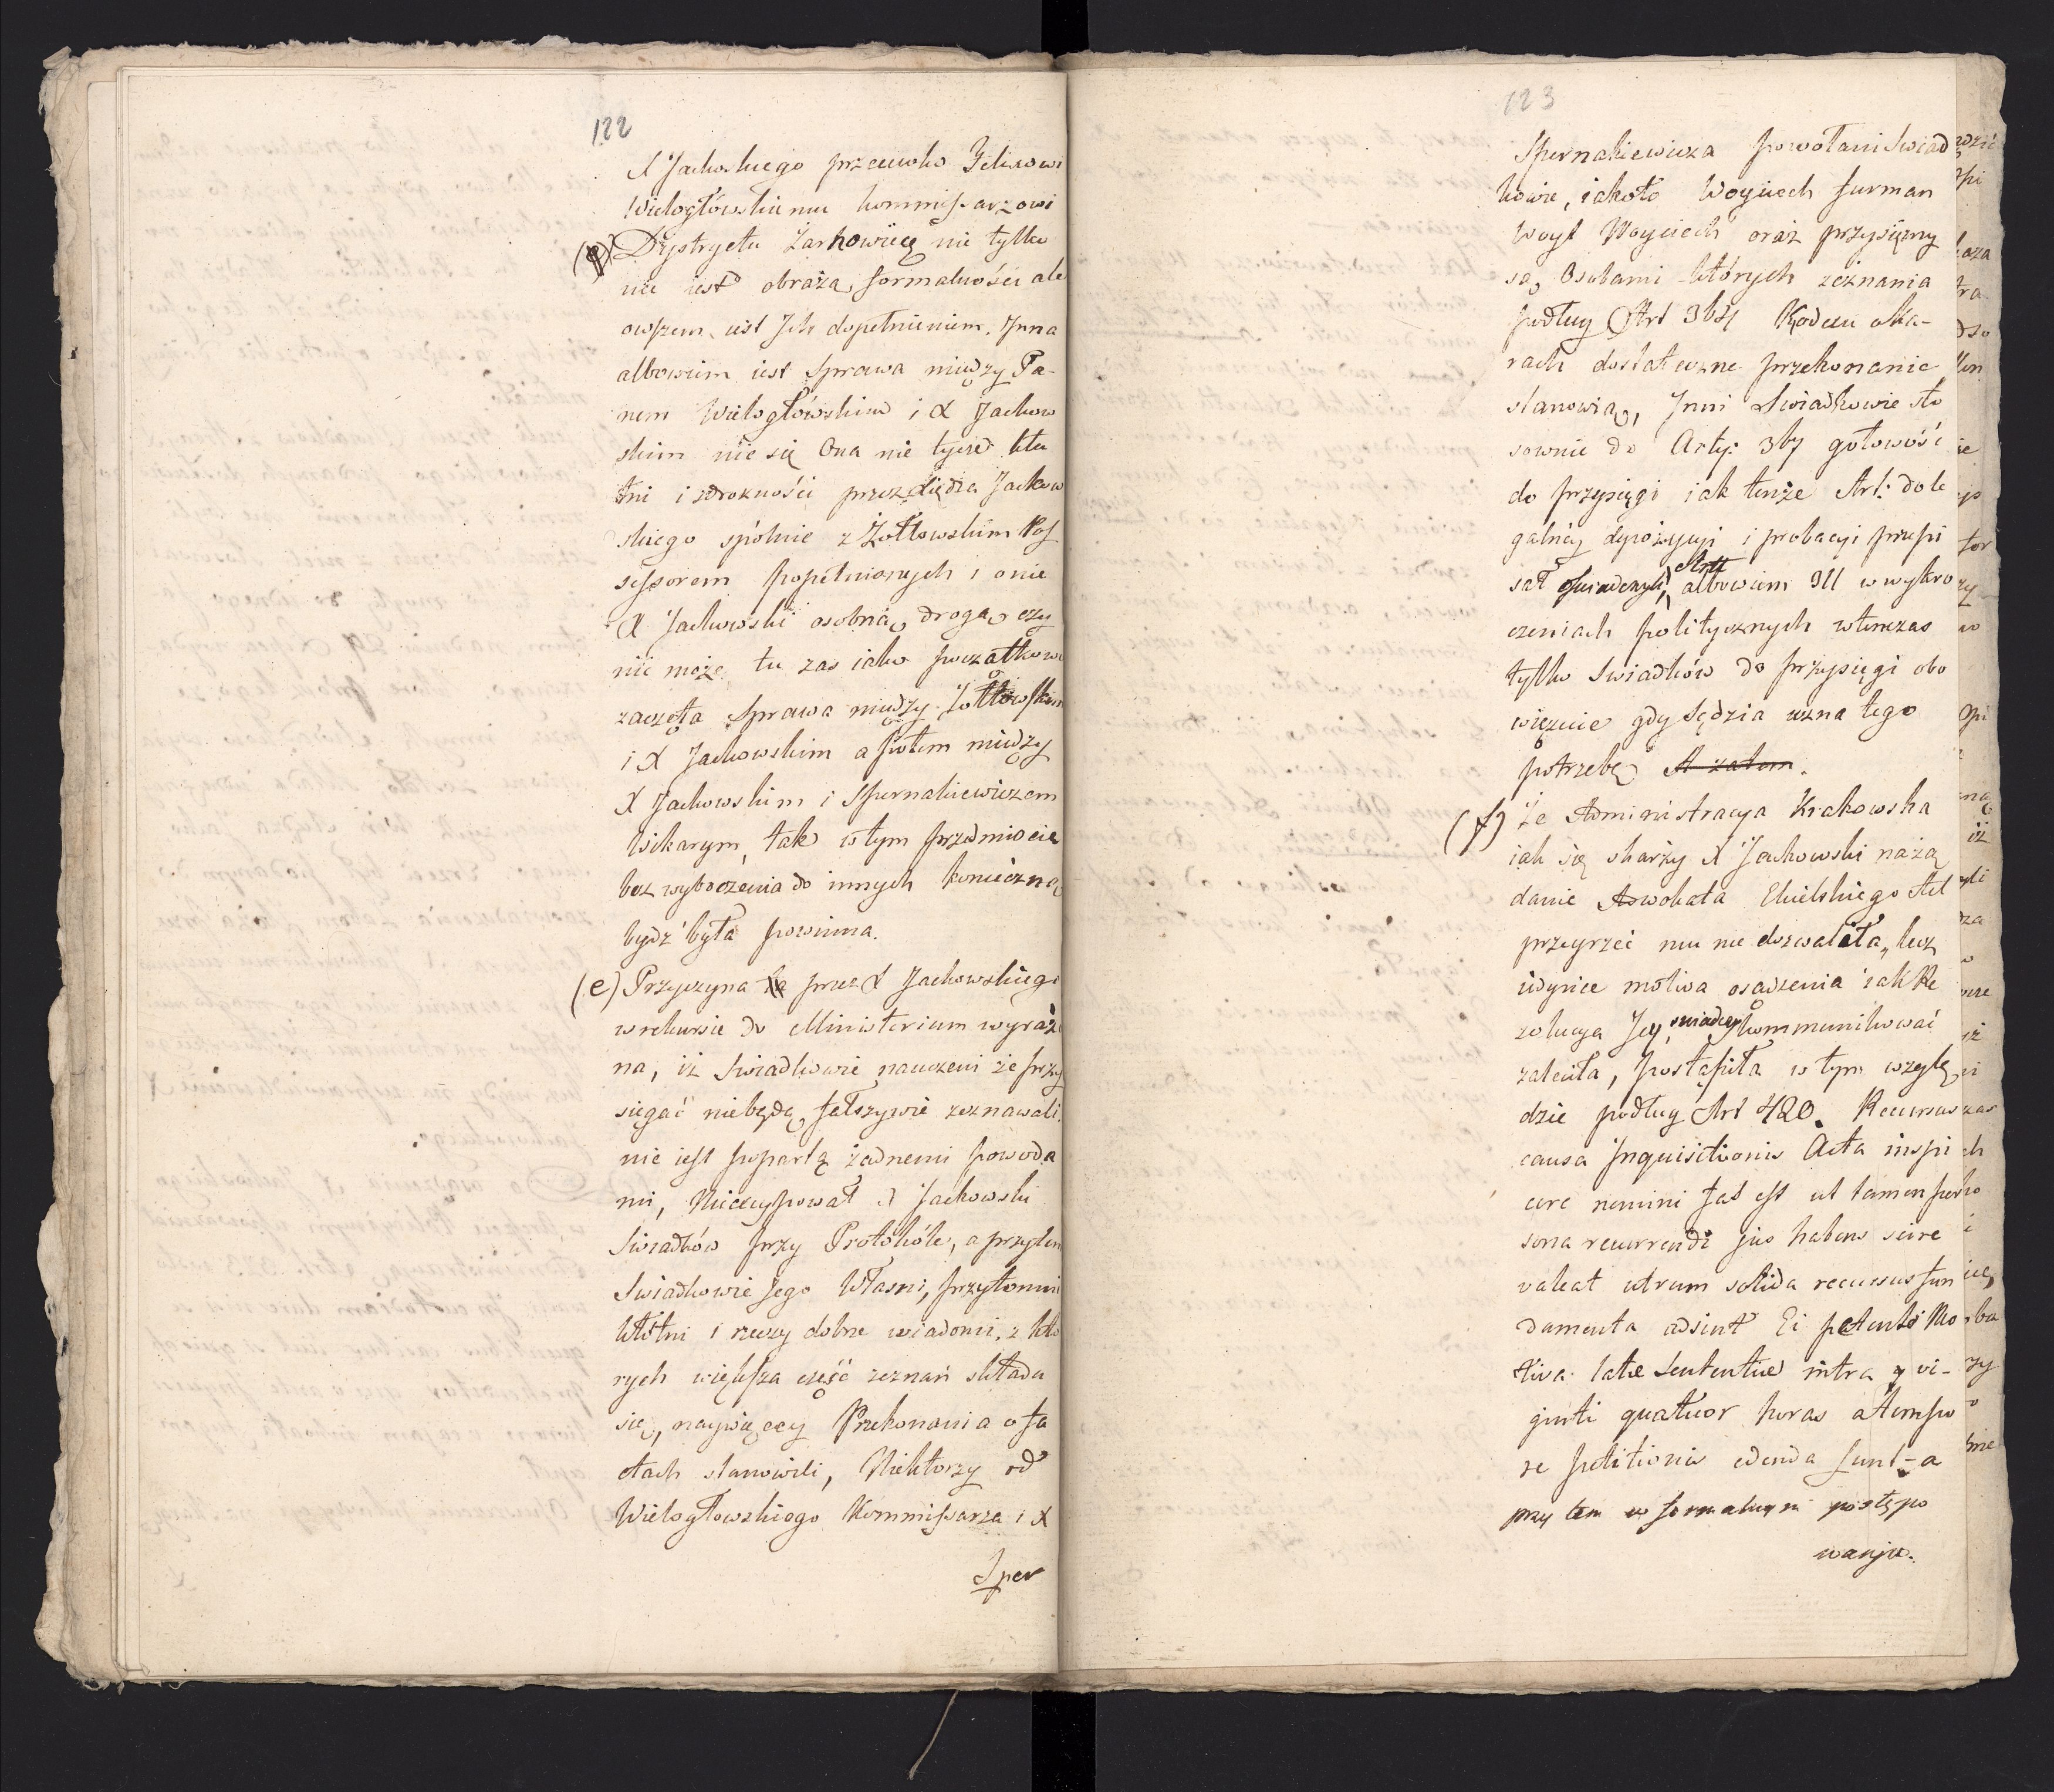 122
X Jackowskiego przeciwko Felixowi
Wielogłowskiemu kommissarzowi
Dystryctu Żarnowiec nie tylko
nie iest obrazą formalności ale
owszem iest Ich dopełnieniem. Inna
albowiem iest sprawa między Pa-
nem Wielogłówskim i X Jackow
skim nie się Ona nie tycze
tni i zdrożności przez Xiędza Jackow
skiego spólnie z Żółtowskim Pos
sessorem popełnionych i o nie
X Jackowski osobną drogą czy
nić może, tu zaś iako początkowo
zaczęta sprawa między Żółtowskim
i X Jackowskim a potem między
X Jackowskim i Spernakiewiczem
Wikarym, tak w tym przedmiocie
bez wyboczenia do innych konieczną
bydź była powinna.
(e) Przyczyna przez X Jackowskiego
w rekursie do Ministerium wyrażo
na, iż Swiadkowie nauczeni że przy
sięgać niebędą, fałszywie zeznawali
nie iest popartą żadnemi powoda
mi, Nieexcypował X Jackowski
Swiadków przy Protokóle, a przytem
Swiadkowie Jego Własni, przytomni
kłótni i rzeczy dobrze wiadomi, z któ
rych większa część zeznań składa
się, naywięcey Przekonania o fa
ctach stanowili, Niektorzy od
Wielogłowskiego Kommissarza i X
Sper
123
Spernakiewicza powołani Swiad
kowie, iakoto Woyciech furman
Woyt Woyciech oraz przysiężny
są Osobami których zeznania
podług Art 364 Kodexu o Ka-
rach dostateczne przekonanie
stanowią, Inni Swiadkowie sto
sownie do Arty: 367 gotowość
do przysięgi iak tenże Art: do le
galney depozycyi i probacyi przepi
sał oswiadczyli, Artt albowiem 311 w wykro
czeniach politycznych wtenczas
tylko Swiadków do przysięgi obo
więzuie gdy Sędzia uzna tego
potrzebę A zatem.
(f) Że Administracya Krakowska
iak się skarży X Jackowski na żą
danie Adwokata Ekielskiego Akt
przeyrzeć mu nie dozwalała, lecz
iedynie motiva osądzenia iak Re
zolucya Jey swiadczy kommunikować
zaleciła, postąpiła w tym wzglę
dzie podług Art 420. Recursus
causa Inquisitionis Acta inspi
cere nemini fas est ut tamen per
sona recurrendi jus habens scire
valeat utrum solida recursus fun
damenta adsint Ei petenti Mo
tiva latæ Sententiæ intra vi-
ginti quatuor horas a tempo
re petitionis edenda sunt - a
przy tem w formalnym postępo
waniu.